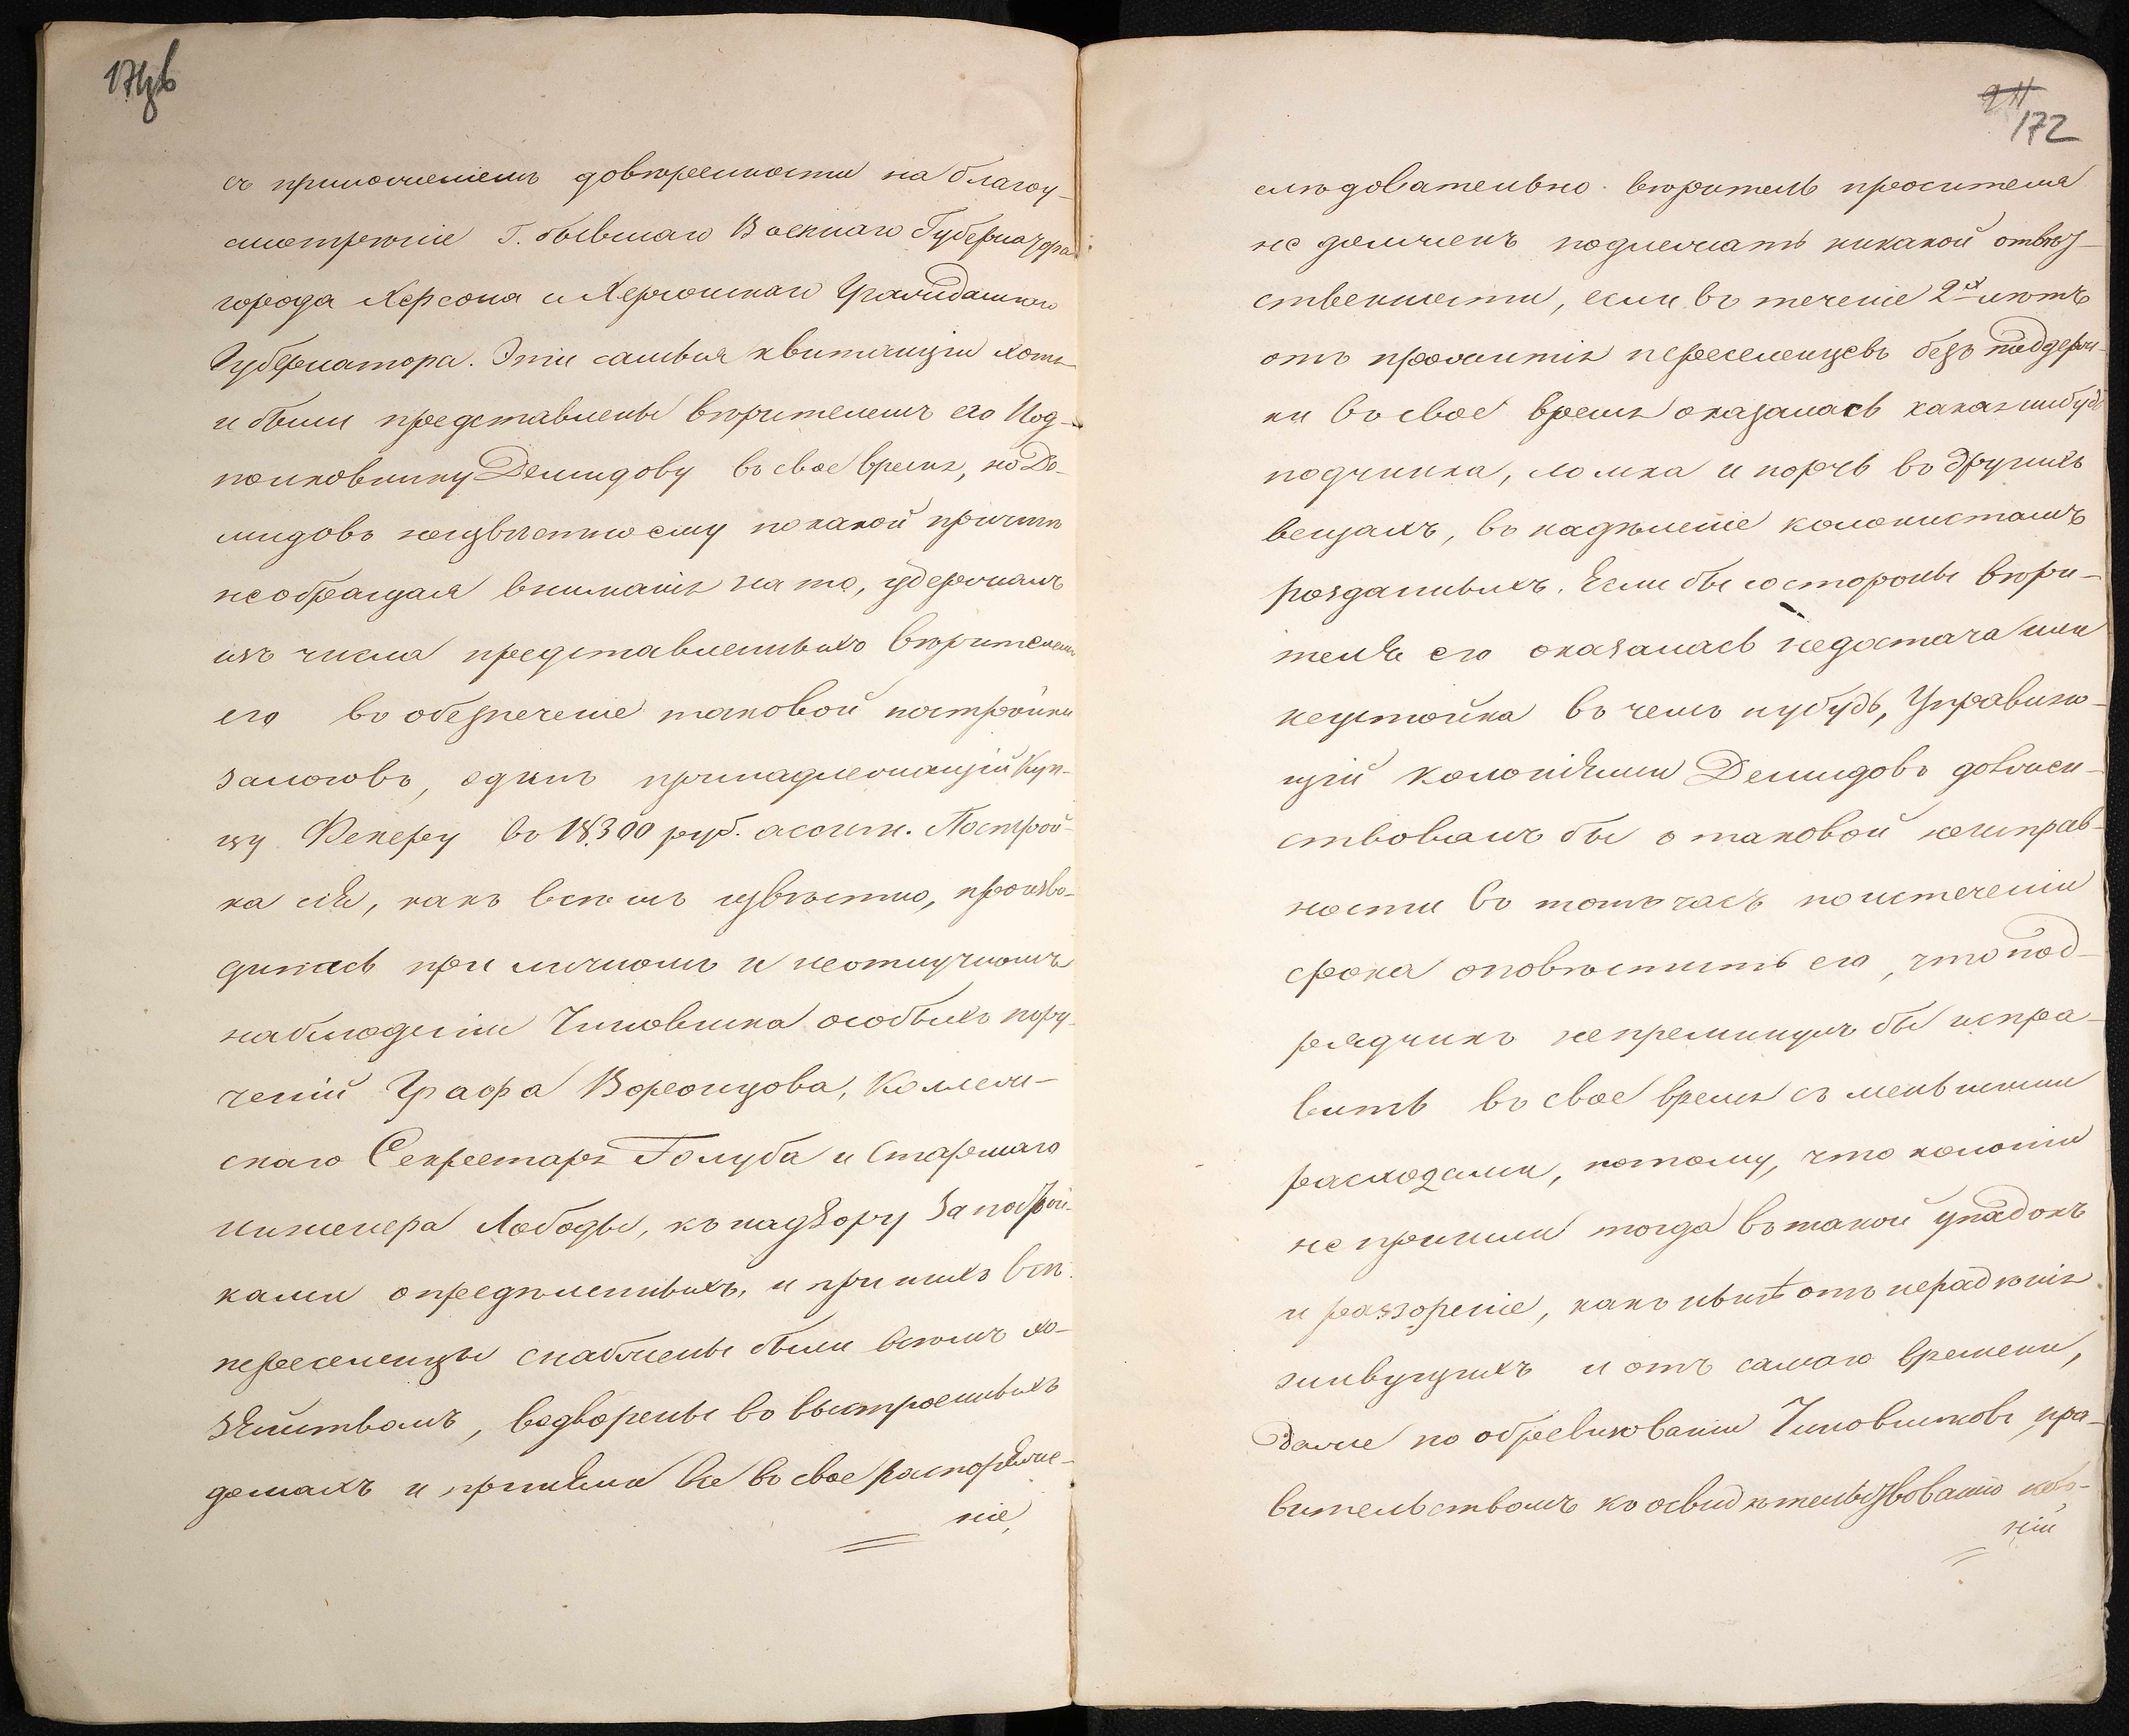 171об
съ приложеніемъ довѣренности на благоу-
смотрѣніе Г. бывшаго Военнаго Губернатора
города Херсона и Херсонскаго Гражданскаго
Губернатора. Эти самыя квитанціи хотя
и были представлены вѣрителемъ его Под-
полковнику Демидову въ свое время, но Де-
мидовъ неизвѣстно ему по какой причинѣ
необращая вниманія на то, удержалъ
изъ числа представленныхъ вѣрителемъ
его въ обезпеченіе таковой постройки
залоговъ, одинъ принадлежащій Куп-
цу Фекеру въ 18300 руб. ассигн. Построй-
ка сія, какъ всѣмъ извѣстно, произво-
дилась при личномъ и неотлучномъ
наблюденіи Чиновника особыхъ пору-
ченій Графа Воронцова, Коллеж-
скаго Секретаря Голуба и Старшаго
Инженера Лободы, къ надзору за построй-
ками опредѣленныхъ, и при нихъ всѣ
переселенцы снабжены были всѣмъ хо-
зяйствомъ, водворены въ выстроенныхъ
домахъ и приняли все въ свое распоряже-
ніе,
211
172
слѣдовательно вѣритель просителя
не долженъ подлежать никакой отвѣт-
ственности, если въ теченіе 2х лѣтъ
отъ прожитія переселенцевъ безъ поддерж-
ки въ свое время оказалась какая нибудь
подчинка, ломка и порчь въ другихъ
вещахъ, въ надѣленіе колонистамъ
розданныхъ. Если бы со стороны вѣри-
теля его оказалась недостача или
неустойка въ чемъ нубудь, Управляю-
щій колоніями Демидовъ долженъ-
ствовалъ бы о таковой неисправ-
ности въ тотъ часъ по истеченіи
срока оповѣстить его, что под-
рядчикъ непреминулъ бы испра-
вить въ свое время съ меньшими
расходами, потому, что колоніи
не пришли тогда въ такой упадокъ
и раззореніе, какъ нынѣ отъ нерадѣнія
живущихъ и отъ самаго времени,
Далѣе по обревизованіи Чиновниковъ, пра-
вительствомъ къ освидѣтельствованію коло-
ній